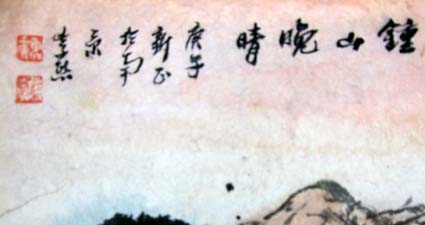 鍾山晚晴
庚午
新正
於南
京